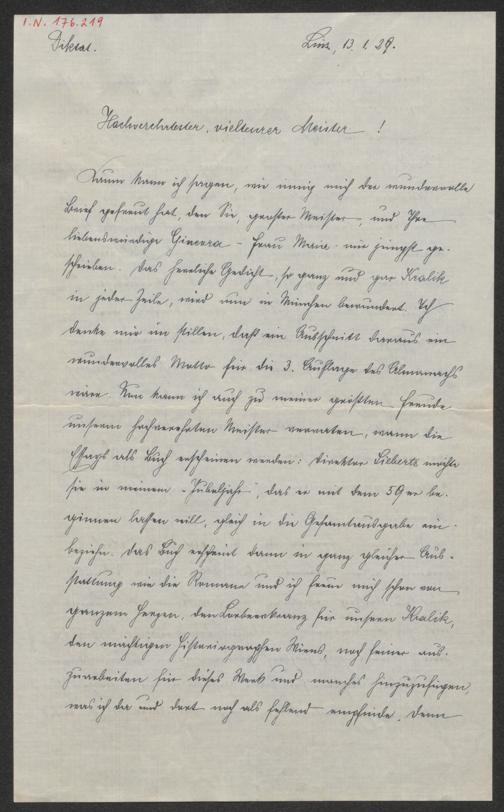 I.N. 176.219
Diktat.
Linz, 13. 1. 29.
Hochverehrtester, vielteurer Meister !
Kaum kann ich sagen, wie innig mich der wundervolle
Brief gefreut hat, den Sie, großer Meister, und Ihre
liebenswürdige Ginevra - Frau Maria - mir jüngst ge-
schrieben. Das herrliche Gedicht, so ganz und gar Kralik
in jeder Zeile, wird nun in München bewundert. Ich
denke mir im stillen, daß ein Abschnitt daraus ein
wundervolles Motto für die 3. Auflage des Almanachs
wäre. Nun kann ich auch zu meiner größten Freude
unserem hochverehrten Meister verraten, wann die
Essays als Buch erscheinen werden: Direktor Lieberts möchte
sie in meinem "Jubeljahr", das er mit dem 59er be-
ginnen lassen will, gleich in die Gesamtausgabe ein-
beziehn. Das Buch erscheint dann in ganz gleicher Aus-
stattung wie die Romane und ich freue mich schon von
ganzem Herzen, den Lorbeerkranz für unseren Kralik,
den mächtigen Historiographen Wiens, noch feiner aus-
zuarbeiten für dieses Werk und manches hinzuzufügen,
was ich da und dort noch als fehlend empfinde. Denn